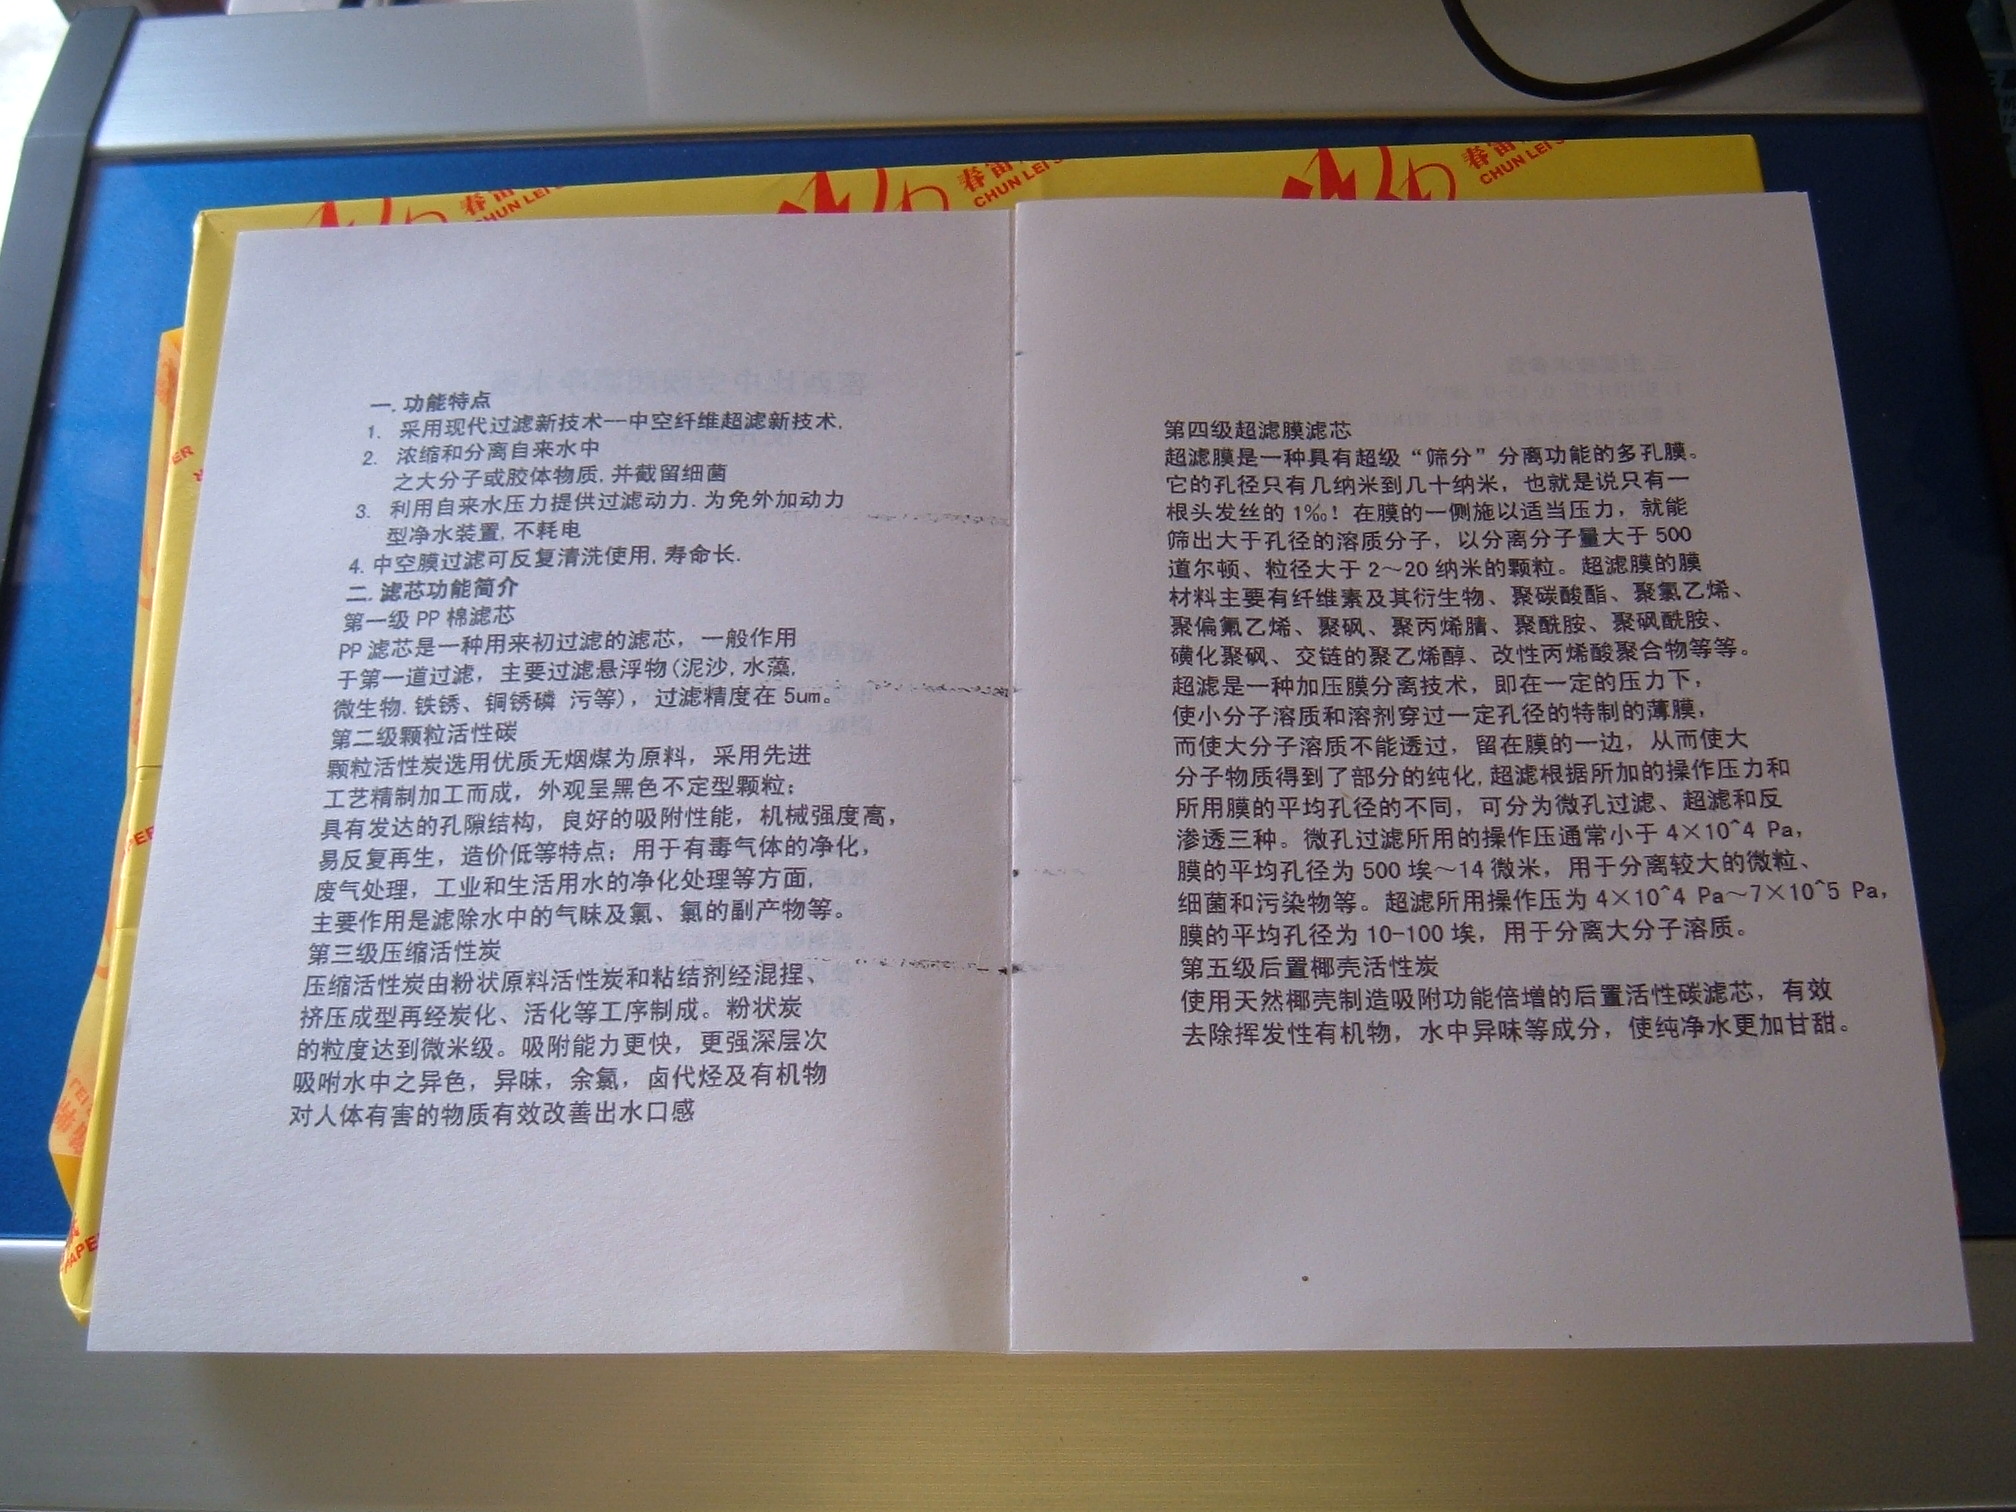 春蕾
CHUN LEI
春蕾
CHUN LEI
春蕾
CHUN LEI
一.功能特点
1. 采用现代过滤新技术--中空纤维超滤新技术.
2. 浓缩和分离自来水中
之大分子或胶体物质.并截留细菌
3. 利用自来水压力提供过滤动力.为免外加动力
型净水装置,不耗电
4.中空膜过滤可反复清洗使用.寿命长.
二.滤芯功能简介
第一级 PP 棉滤芯
PP 滤芯是一种用来初过滤的滤芯，一般作用
于第一道过滤，主要过滤悬浮物(泥沙,水藻,
微生物.铁锈、铜锈磷 污等)，过滤精度在 5um。
第二级颗粒活性碳
颗粒活性炭选用优质无烟煤为原料，采用先进
工艺精制加工而成，外观呈黑色不定型颗粒；
具有发达的孔隙结构，良好的吸附性能，机械强度高，
易反复再生，造价低等特点；用于有毒气体的净化，
废气处理，工业和生活用水的净化处理等方面,
主要作用是滤除水中的气味及氯、氯的副产物等。
第三级压缩活性炭
压缩活性炭由粉状原料活性炭和粘结剂经混捏、
挤压成型再经炭化、活化等工序制成。粉状炭
的粒度达到微米级。吸附能力更快，更强深层次
吸咐水中之异色，异味，余氯，卤代烃及有机物
对人体有害的物质有效改善出水口感
第四级超滤膜滤芯
超滤膜是一种具有超级“筛分”分离功能的多孔膜。
它的孔径只有几纳米到几十纳米，也就是说只有一
根头发丝的 1‰！在膜的一侧施以适当压力，就能
筛出大于孔径的溶质分子，以分离分子量大于 500
道尔顿、粒径大于 2～20 纳米的颗粒。超滤膜的膜
材料主要有纤维素及其衍生物、聚碳酸酯、聚氯乙烯、
聚偏氟乙烯、聚砜、聚丙烯腈、聚酰胺、聚砜酰胺、
磺化聚砜、交链的聚乙烯醇、改性丙烯酸聚合物等等。
超滤是一种加压膜分离技术，即在一定的压力下，
使小分子溶质和溶剂穿过一定孔径的特制的薄膜，
而使大分子溶质不能透过，留在膜的一边，从而使大
分子物质得到了部分的纯化,超滤根据所加的操作压力和
所用膜的平均孔径的不同，可分为微孔过滤、超滤和反
渗透三种。微孔过滤所用的操作压通常小于 4×10^4 Pa，
膜的平均孔径为 500 埃～14 微米，用于分离较大的微粒、
细菌和污染物等。超滤所用操作压为 4×10^4 Pa～7×10^5 Pa，
膜的平均孔径为 10-100 埃，用于分离大分子溶质。
第五级后置椰壳活性炭
使用天然椰壳制造吸附功能倍增的后置活性碳滤芯，有效
去除挥发性有机物，水中异味等成分，使纯净水更加甘甜。